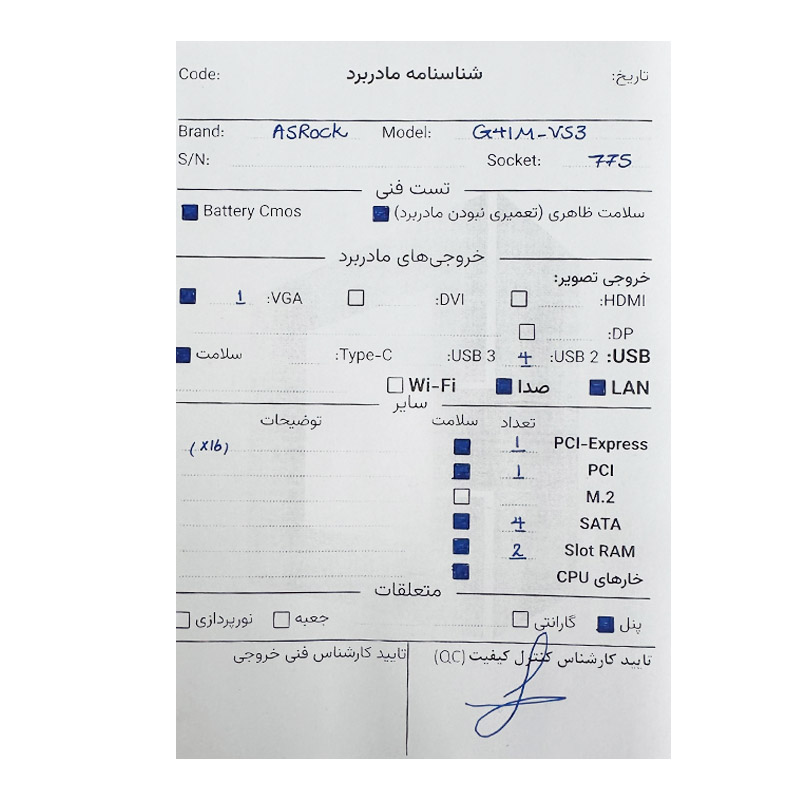 Code: شناسنامه مادربرد تاریخ:
Brand: ASRock Model: G41M-VS3
S/N: Socket: 775
تست فنی
سلامت ظاهری (تعمیری نبودن مادربرد) Battery Cmos
خروجی‌های مادربرد
خروجی تصویر:
HDMI: DVI: VGA: 1
DP:
USB: USB 2: 4 USB 3: Type-C: سلامت
LAN صدا Wi-Fi
سایر
تعداد سلامت توضیحات
PCI-Express 1 (x16)
PCI 1
M.2
SATA 4
Slot RAM 2
خارهای CPU
متعلقات
پنل گارانتی جعبه نورپردازی
تایید کارشناس کنترل کیفیت (QC) تایید کارشناس فنی خروجی